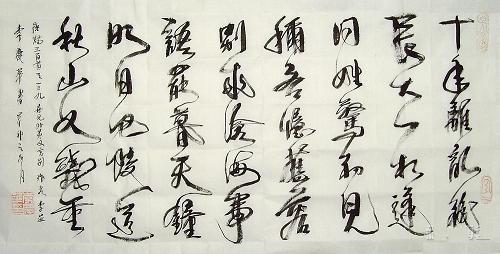 十年離亂後
長大一相逢
問姓驚初見
稱名憶舊容
別來滄海事
語罷暮天鐘
明日巴陵道
秋山又幾重
唐詩三百首之一百九 喜見外弟又言別 作者 李益
李